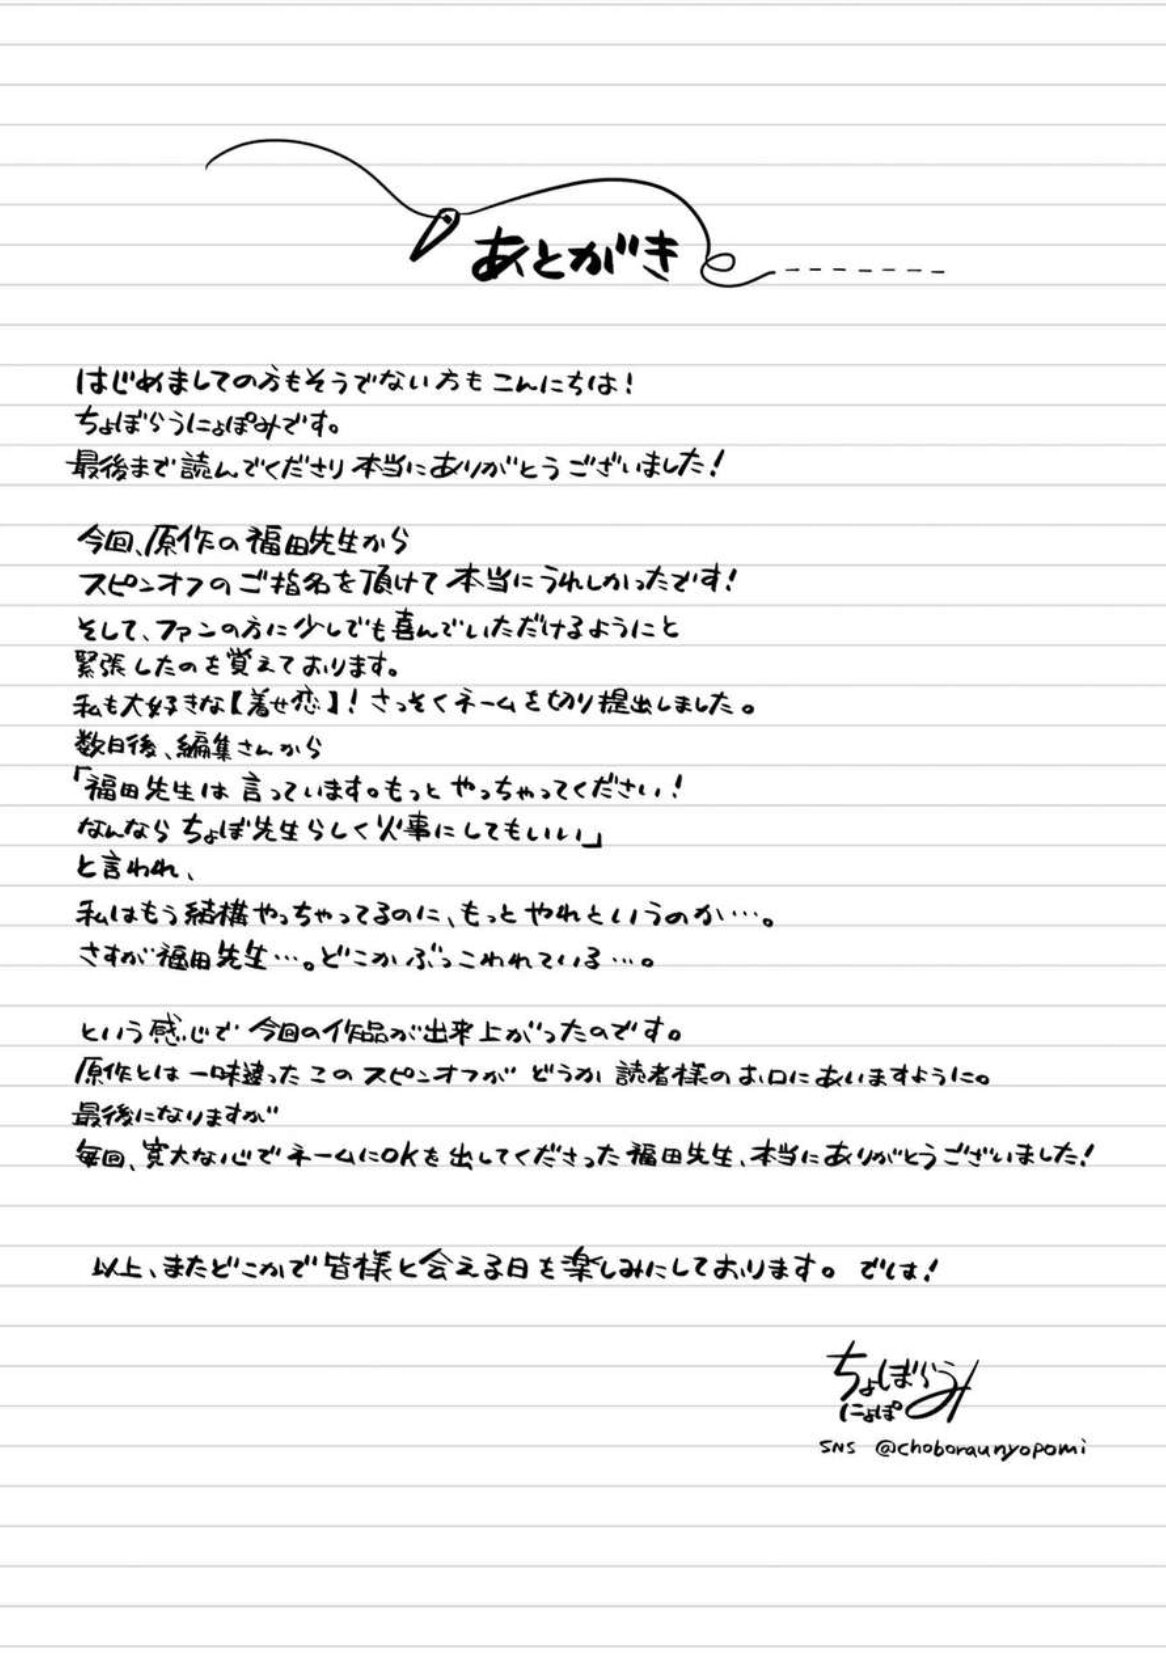 あとがき
はじめましての方もそうでない方もこんにちは!
ちょぼらうにょぽみです。
最後まで読んでくださり本当にありがとうございました!
今回、原作の福田先生から
スピンオフのご指名を頂けて本当にうれしかったです!
そして、ファンの方に少しでも喜んでいただけるようにと
緊張したのを覚えております。
私も大好きな【着せ恋】!さっそくネームを切り提出しました。
数日後、編集さんから
「福田先生は言っています。もっとやっちゃってください!
なんならちょぼ先生らしく火事にしてもいい」
と言われ、
私はもう結構やっちゃってるのに、もっとやれというのか…。
さすが福田先生…。どこかぶっこわれている…。
という感じで今回の作品が出来上がったのです。
原作とは一味違ったこのスピンオフがどうか読者様のお口にあいますように。
最後になりますが
毎回、寛大な心でネームにOKを出してくださった福田先生、本当にありがとうございました!
以上、またどこかで皆様と会える日を楽しみにしております。では!
ちょぼらう
にょぽみ
SNS @choboraunyopomi